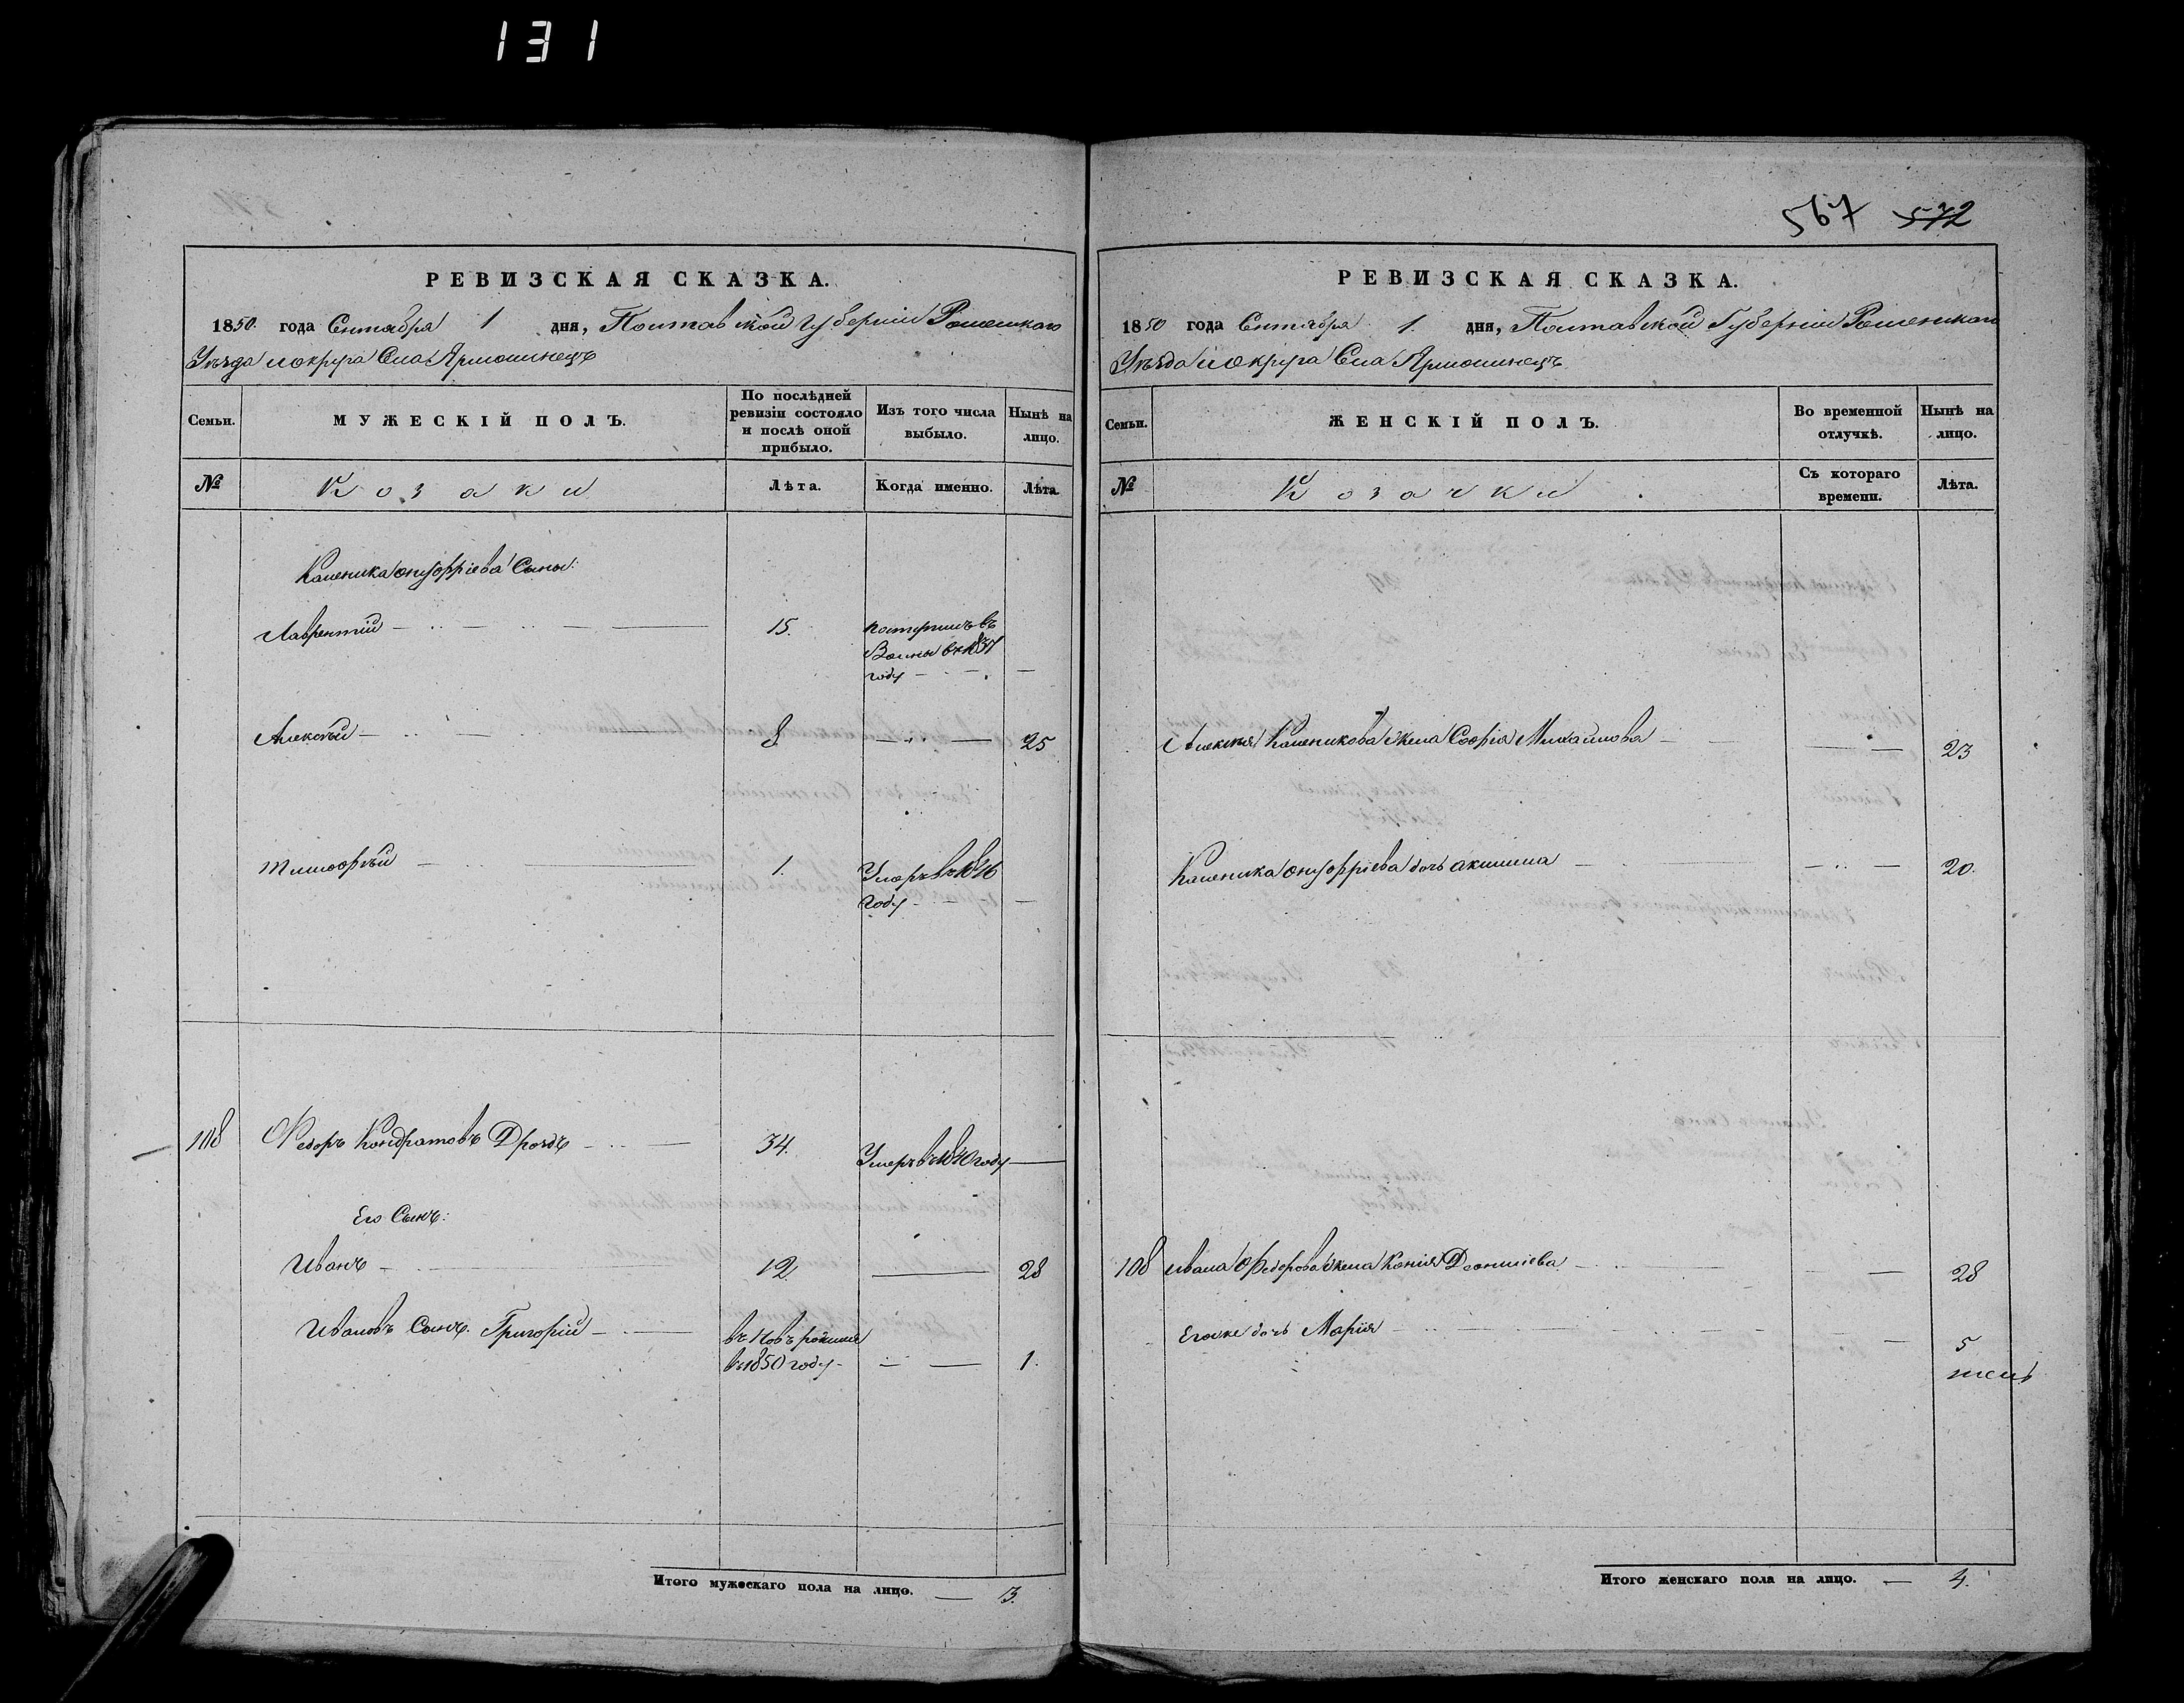 131
567 572
РЕВИЗСКАЯ СКАЗКА.
1850. года Сентября 1 дня, Полтавской Губернии Роменскаго
Уѣзда и округа Села Ярмолинецъ
Семьи.
МУЖЕСКІЙ ПОЛЪ.
По послѣдней ревизіи состояло и послѣ оной прибыло.
Изъ того числа выбыло.
Нынѣ на лицо.
№
Козаки
Лѣта.
Когда именно.
Лѣта
Каленика Онуфріева Сыны:
Лаврентій 15.
поступилъ въ
Воины въ 1837
году
Алексѣй 8 25
Тимофѣй 1. Умеръ въ 1846
году
108 Федоръ Кондратовъ Дроздъ 34. Умеръ въ 1840 году
Его Сынъ:
Иванъ 12 28
Ивановъ Сынъ Григорій
въ 1850 году 1.
Итого мужескаго пола на лицо. 3.
РЕВИЗСКАЯ СКАЗКА.
1850 года Сентября 1. дня, Полтавской Губерніи Роменскаго
Уѣзда и Округа Села Ярмолинецъ
Семьи.
ЖЕНСКІЙ ПОЛЪ.
Во временной отлучкѣ.
Нынѣ на лицо.
№
Козачки
Съ котораго времени.
Лѣта.
Алексѣя Каленикова жена Софія Михайлова 23
Каленика Онуфріева дочь Акилина 20.
108 Ивана Федорова жена Деонисіева 28
Его же дочь Марія 5
Итого женскаго пола на лицо. 4.